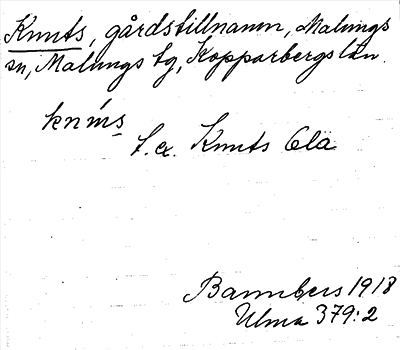 Knuts, gårdstillnamn, Malungs
sn, Malungs tg, Kopparbergs län.
knúts
t. ex. Knuts Ola
Bannbers 1918
Ulma 379:2